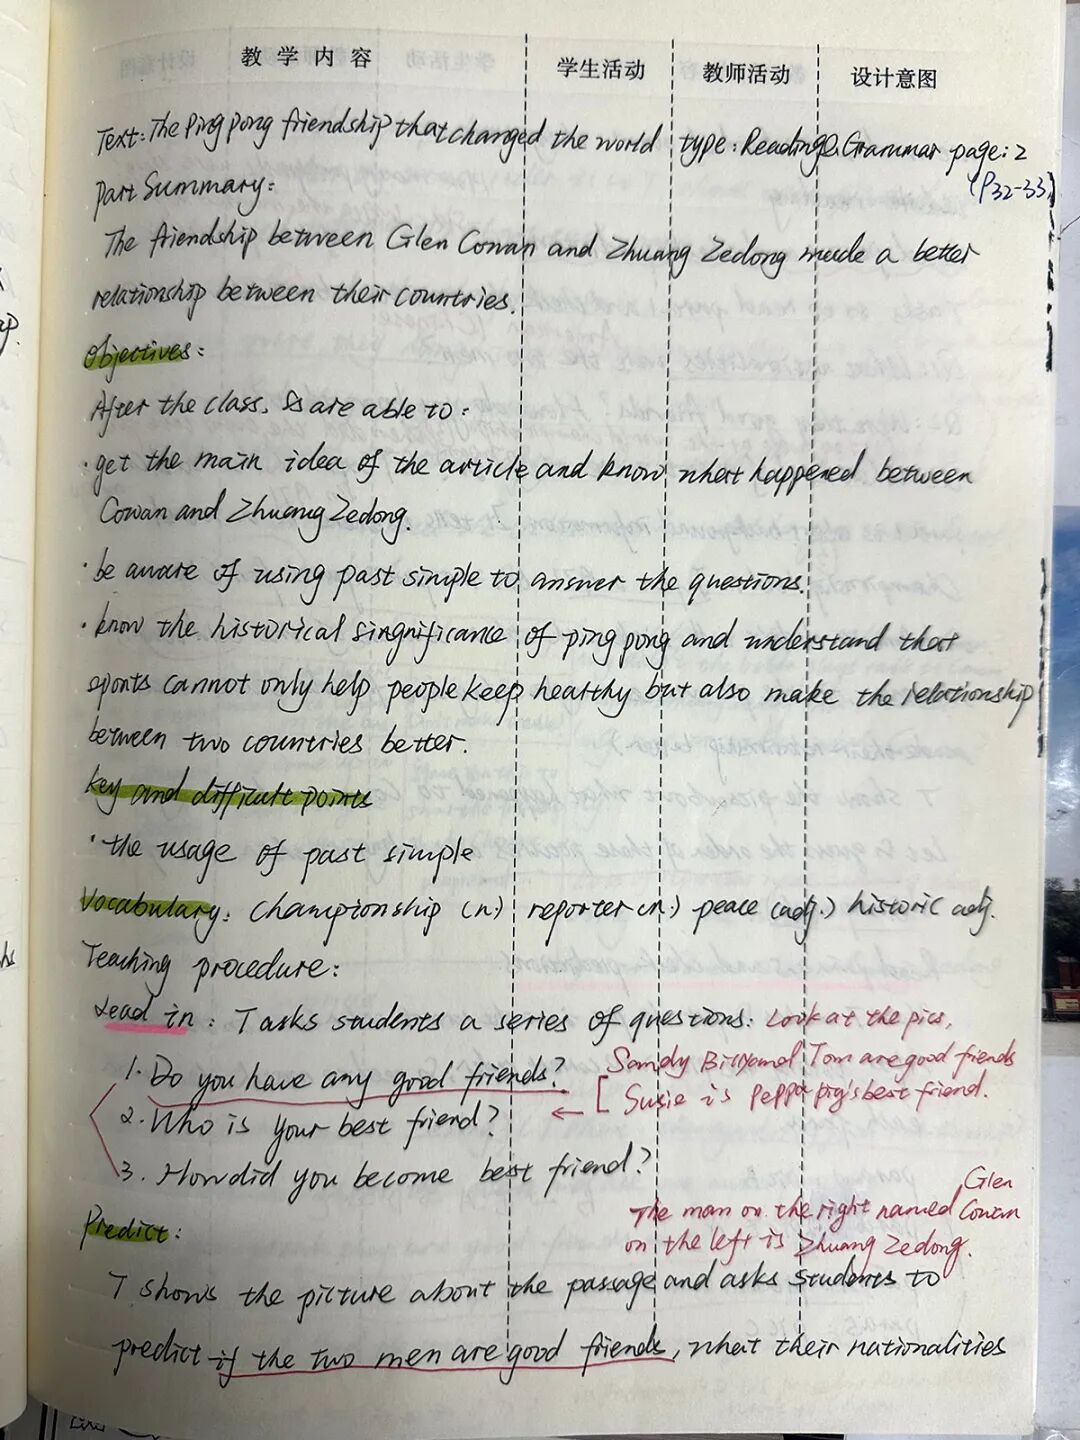 教 学 内 容 学生活动 教师活动 设计意图
Text: The Ping pong friendship that changed the world type: Reading&Grammar page: 2
(P32-33)
Part Summary:
The friendship between Glen Cowan and Zhuang Zedong made a better
relationship between their countries.
Objectives:
After the class, Ss are able to:
· get the main idea of the article and know what happened between
Cowan and Zhuang Zedong.
· be aware of using past simple to answer the questions.
· know the historical singnificance of ping pong and understand that
sports cannot only help people keep healthy but also make the relationship
between two countries better.
key and difficult points
· the usage of past simple
Vocabulary: Championship (n) reporter (n.) peace (adj.) historic adj.
Teaching procedure:
Lead in: T asks students a series of questions: Look at the pics,
1. Do you have any good friends? Sandy Billy and Tom are good friends
2. Who is your best friend? ← [ Susie is Peppa pig's best friend.
3. How did you become best friend?
Predict: The man on the right named Glen Cowan
on the left is Zhuang Zedong.
T shows the picture about the passage and asks students to
predict if the two men are good friends, what their nationalities